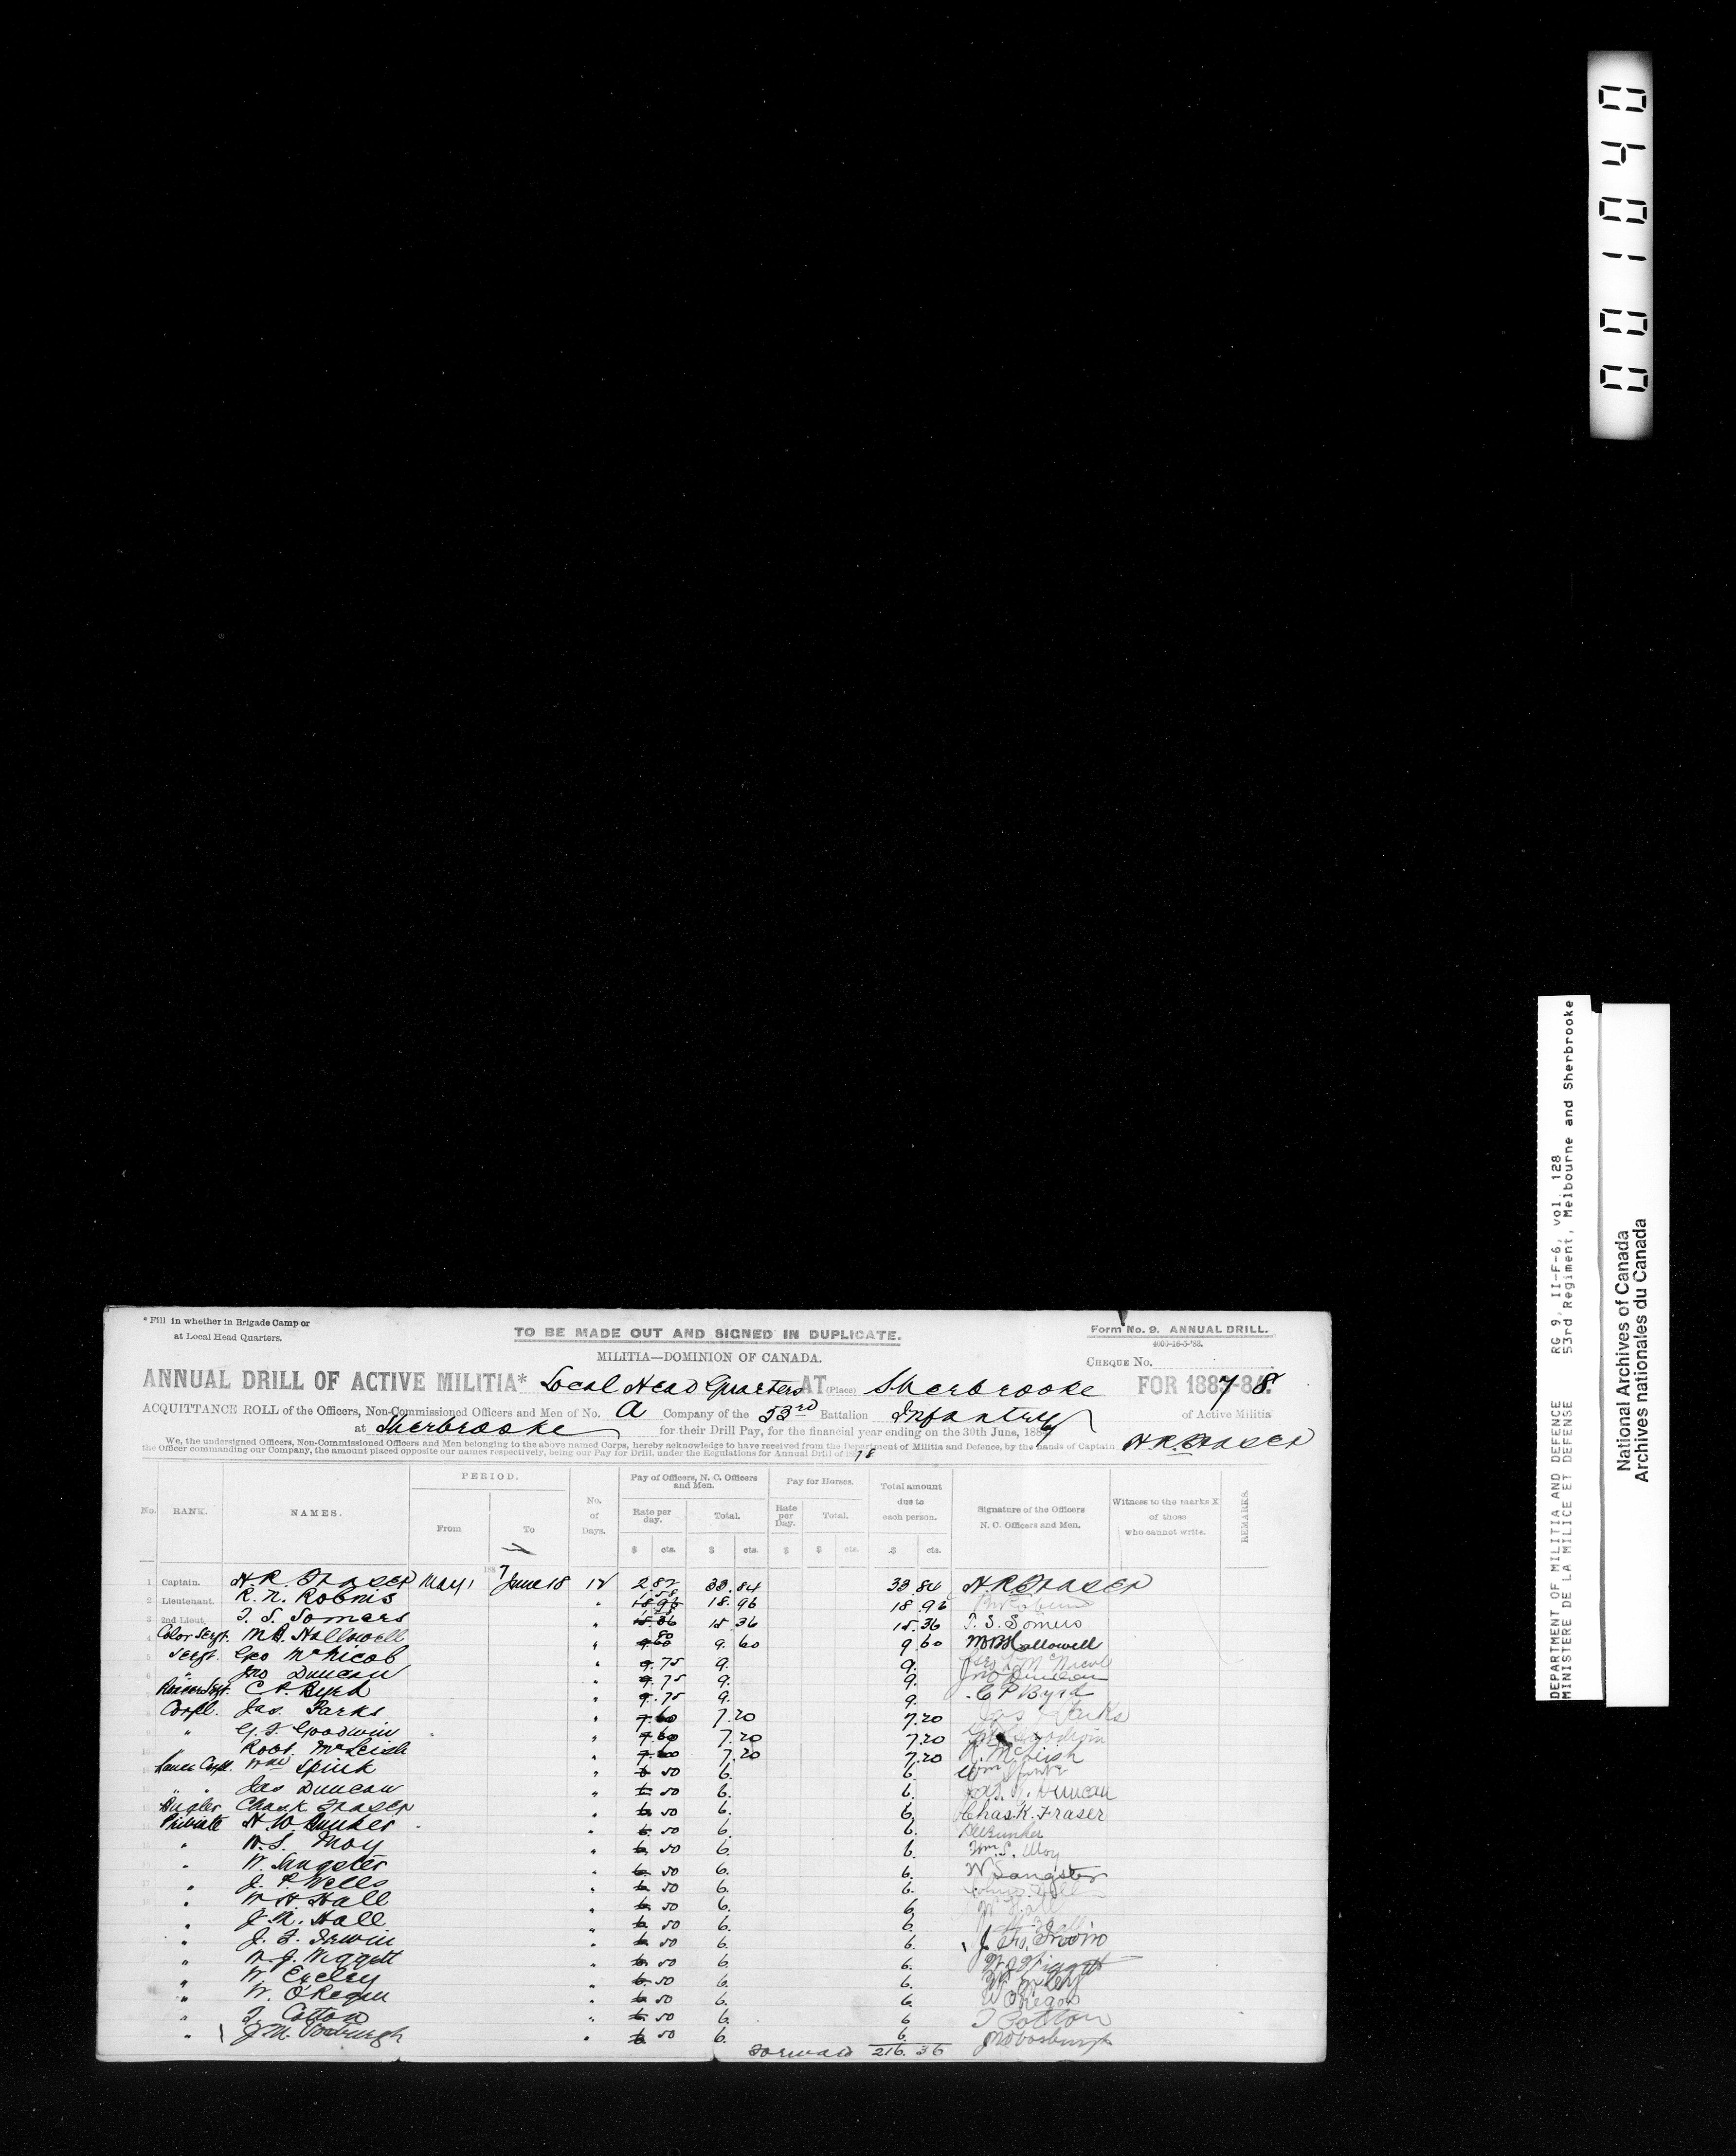 001040
* Fill in whether in Brigade Camp or
at Local Head Quarters.
TO BE MADE OUT AND SIGNED IN DUPLICATE.
Form No. 9. ANNUAL DRILL.
MILITIA—DOMINION OF CANADA.
CHEQUE No.
ANNUAL DRILL OF ACTIVE MILITIA* Local Head Quarters AT (Place) Sherbrooke FOR 1887-8
ACQUITTANCE ROLL of the Officers, Non-Commissioned Officers and Men of No. A Company of the 53rd Battalion Infantry of Active Militia
at Sherbrooke for their Drill Pay, for the financial year ending on the 30th June, 188
We, the undersigned Officers, Non-Commissioned Officers and Men belonging to the above named Corps, hereby acknowledge to have received from the Department of Militia and Defence, by the hands of Captain H.R. Fraser
the Officer commanding our Company, the amount placed opposite our names respectively, being our Pay for Drill, under the Regulations for Annual Drill of
No. RANK. NAMES. PERIOD. From To No. of Days. Pay of Officers, N. C. Officers and Men. Rate per day. Total. Pay for Horses. Rate per Day. Total. Total amount due to each person. Signature of the Officers N. C. Officers and Men. Witness to the marks X of those who cannot write. REMARKS.
$ cts. $ cts. $ $ cts. $ cts.
1 Captain. H.R. Fraser May 1 June 18 12 2 82 33.84 33.84 H.R. Fraser
2 Lieutenant. R. N. Robins " 1.58 18.96 18.96
3 2nd Lieut. T. S. Somers " 15.36 15.36 T. S. Somers
Color Sergt. M.B. Hallowell " 80 9.60 9.60 MB Hallowell
Sergt. Geo McNicol " 75 9. 9. Geo McNicol
" Jno Duncan " 75 9. 9. Jno Duncan
C.P. Byrd " 75 9. 9. C P Byrd
Corpl. Jas. Parks " 60 7.20 7.20 Jas Parks
" G. F. Goodwin " 60 7.20 7.20
" Robt. McLeish " 60 7.20 7.20 R. McLeish
Lance Corpl. Wm Spink " 50 6. 6. Wm Spink
" " Jas Duncan " 50 6. 6. Jas. Duncan
Bugler Chas. K. Fraser " 50 6. 6. Chas. K. Fraser
Private H. W. Bunker " 50 6. 6. HW Bunker
" W. S. Moy " 50 6. 6. Wm. S. Moy
" W. Sangster " 50 6. 6. W Sangster
" J. P. Wells " 50 6. 6.
" W. H. Hall " 50 6. 6. W Hall
" J. R. Hall " 50 6. 6.
" J. F. Irwin " 50 6. 6.
" W. J. Wiggett " 50 6. 6. W J Wiggett
" W. Exley " 50 6. 6. W. Exley
" W. O'Regan " 50 6. 6. W O'Regan
" T. Cotton " 50 6. 6 T Cotton
" J.M. Vosburgh " 50 6. 6. JM Vosburgh
Forward 216.36
DEPARTMENT OF MILITIA AND DEFENCE RG 9, II-F-6, vol. 128
MINISTERE DE LA MILICE ET DEFENSE 53rd Regiment, Melbourne and Sherbrooke
National Archives of Canada
Archives nationales du Canada